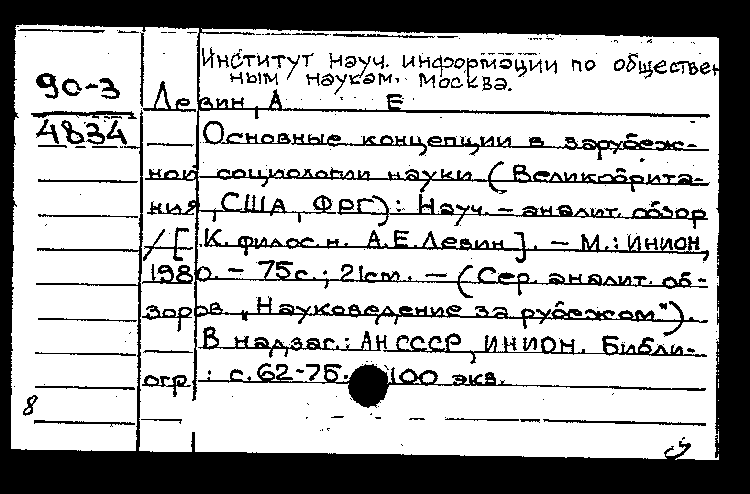 Институт науч. информации по обществен
ным наукам. Москва.
90-3
Левин, А Е
4834
Основные концепции в зарубеж-
ной социологии науки (Великобрита-
ния, США, ФРГ): Науч.-аналит. обзор
/[К. филос. н. А.Е.Левин]. - М.: ИНИОН,
1980. - 75с.; 21см. - (Сер. аналит. об-
зоров „Науковедение за рубежом").
В надзаг.: АН СССР, ИНИОН. Библи-
огр.: с.62-75. 100 экз.
8